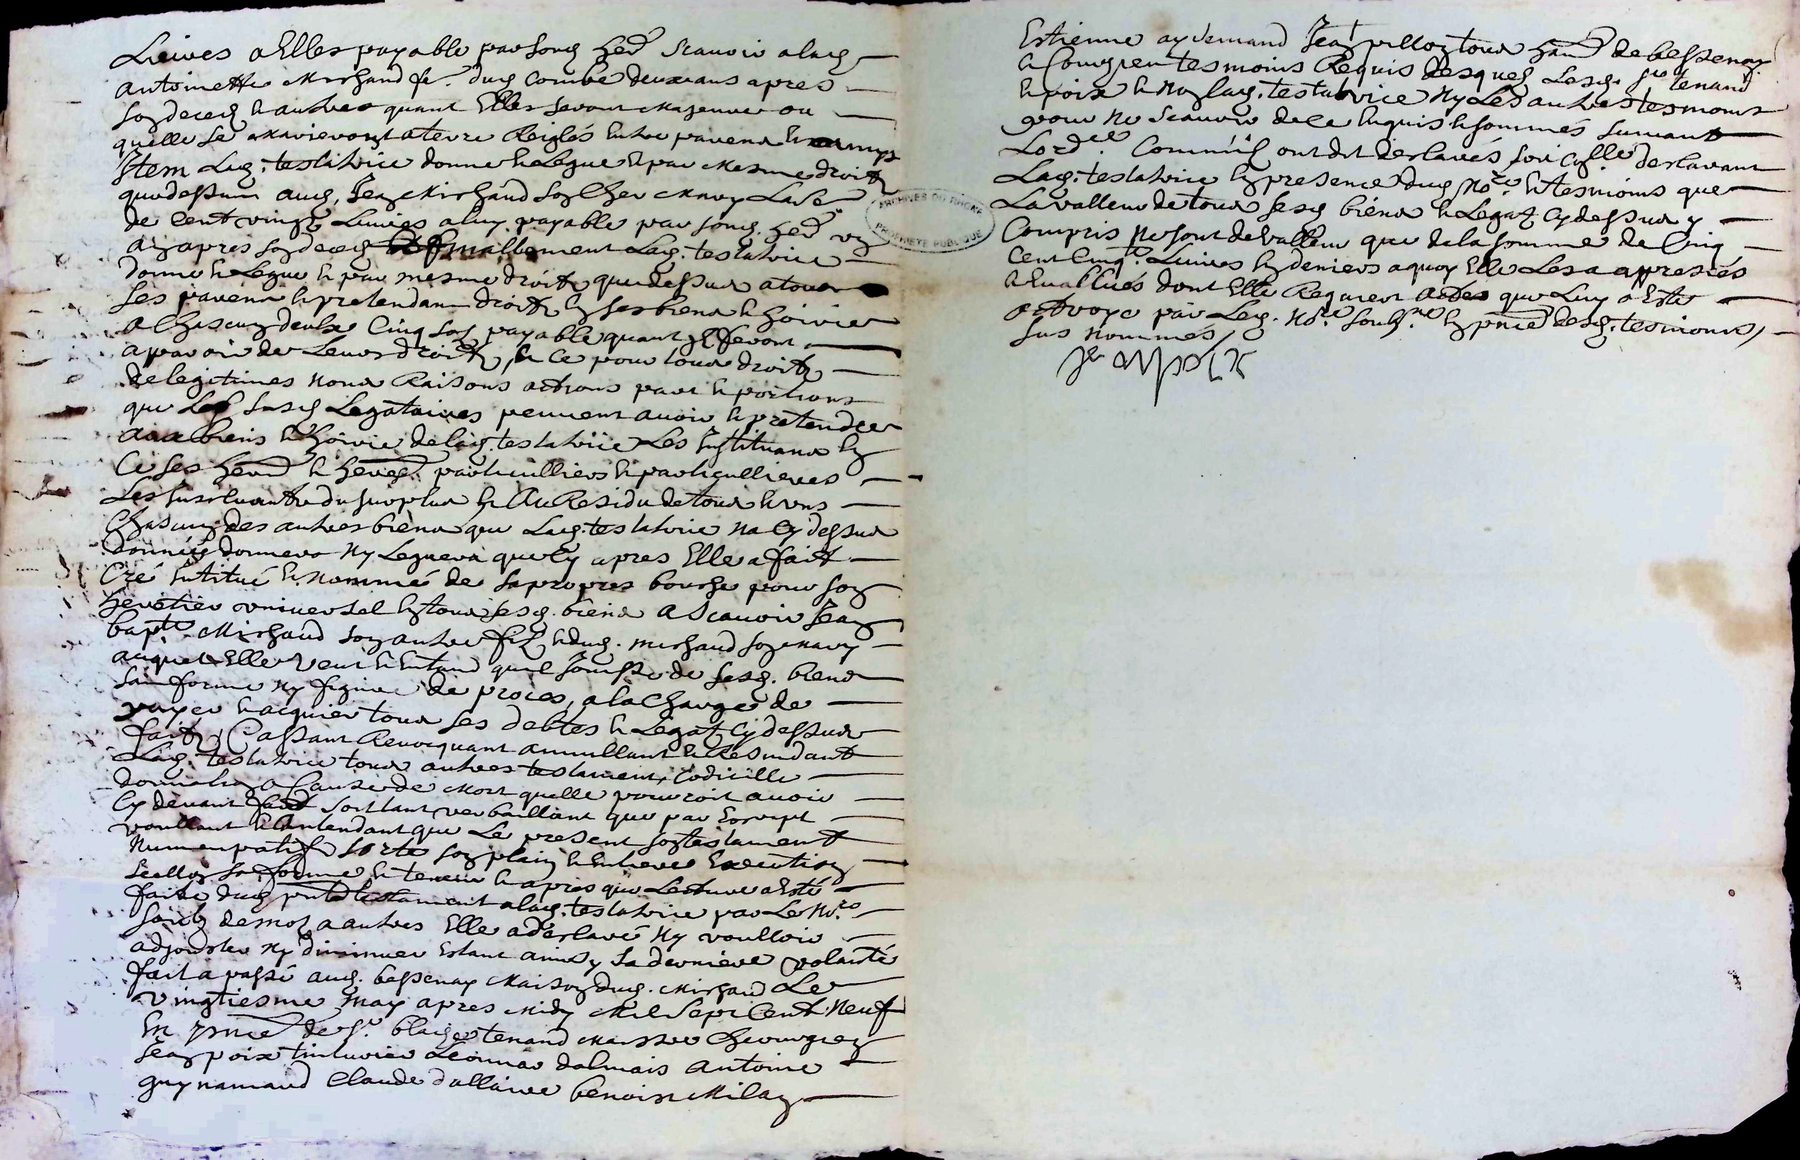 Livres a Elles payable par sond hered scavoir a lad
antoinette Mischaud fe dud Combe deux ans apres
son deces et autres quant Elles seront Majeures ou
quelle se Marieront a terre Reiglés Entre parens et amys
Item lad. testatrice donne et legue et par Mesme droit
que dessus aud. Jean Mischaud son cher Mary La So
de Cent vingt Livres a luy payable par sond. hered un
an apres son deces finallement Lad. testatrice
donne et legue et par mesme droit que dessus a tous
ses parens et pretendans droit en ses biens et hoirie
a Chascun deulx Cinq sols payable quant Ils seront
apparoir de Leurs droits, et ce pour tous droits
de legitimes Noms Raisons actions part et portions
que Les susd Legataires peuvent avoir et pretendre
aux biens et hoirie de lad. testatrice Les Instituant en
Ce ses hered et hered particulliers et particullieres
Et au Residu de tous et uns
Chascuns des autres biens que Lad. testatrice na Cy dessus
donnés donnera Ny Leguera que Cy apres Elle a fait
Créé Institué et Nommé de sa propres bouche pour son
heretier universel en tous sesd. biens a Scavoir Jean
bapte Mischaud son autre filz et dud. mischaud son mary
auquel Elle Veut et Entand quil Jouisse de sesd. biens
sans forme Ny figure de proces, a la Charge de
payer et acquier tous ses debtes et Legatz Cy dessus
faitz, Cassant Revocquant annullant et Resindant
Lad. testatrice tous autres testament, Codicille
donation a Cause de Mort quelle pourroit avoir
Cy devant fait soit tant verbaillant que par Escript
voullant et Entendant que Le present son testament
Nuncupatif sorte son plain et Entiere Execution
scellon sa forme et teneur et apres que Lecture a Esté
faite dud pnt testament a lad. testatrice par Le Nore
soubz de mot a autres Elle a declaré Ny voulloir
adjouster Ny diminuer Estant ainsy sa derniere volonté
fait a passé aud. bessenay Maison dud. Mischaud Le
vingtiesme may apres Midy Mil Sept Cent Neuf
En pnce de Sr. blaise tenand Maistre Chirurgien
Jean poix tinturier Leonnard dalmais Antoine
guynamand Claude dallaire benoist Milan
Estienne aydemand Jean pillon tous hand de bessenay
et Courzieu tesmoins Requis desquels Lesd. Srs tenand
et poix et Non lad. testatrice Ny Les autres tesmoins
pour Ne Scavoir de Ce Enquis et sommés suivant
Lordce Comm'il ont dit declarés soi declarant
Lad. testatrice En presence dud Nore. et tesmoins que
La valleur de tous sesd biens et Legatz Cy dessus y
Compris Ne sont de valleur que de la somme de Cinq
Cent Cinqte. Livres En deniers a quoy Elle Les a appresiés
et Evallués dont Elle Requiert actes que Luy a Esté
octroyé par Led. Nore. soubzné. En pnce desd. tesmoins
sus nommés
ARCHIVES DU RHONE
PROPRIETE PUBLIQUE